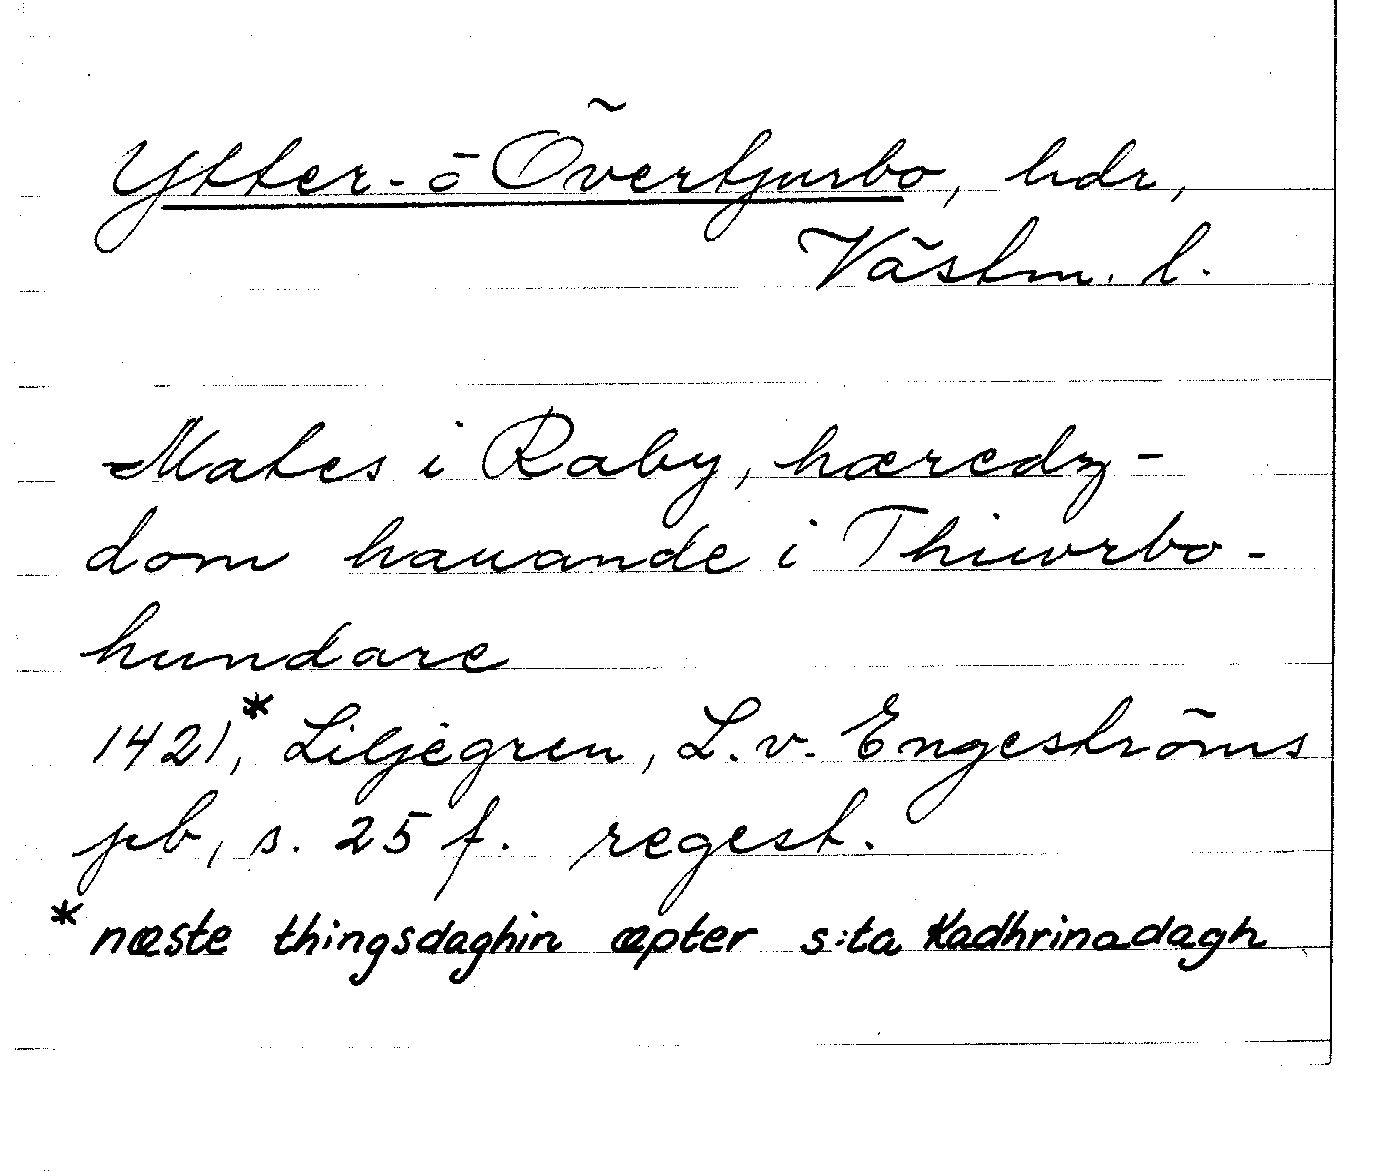 Ytter- o Övertjurbo, hdr,
Västm. l.
Mates i Raby, hæredz-
dom hauande i Thiwrbo-
hundare
1421,* Liljegren, L. v. Engeströms
pb, s. 25 f. regest.
* næste thingsdaghin æpter s:ta Kadhrinadagh